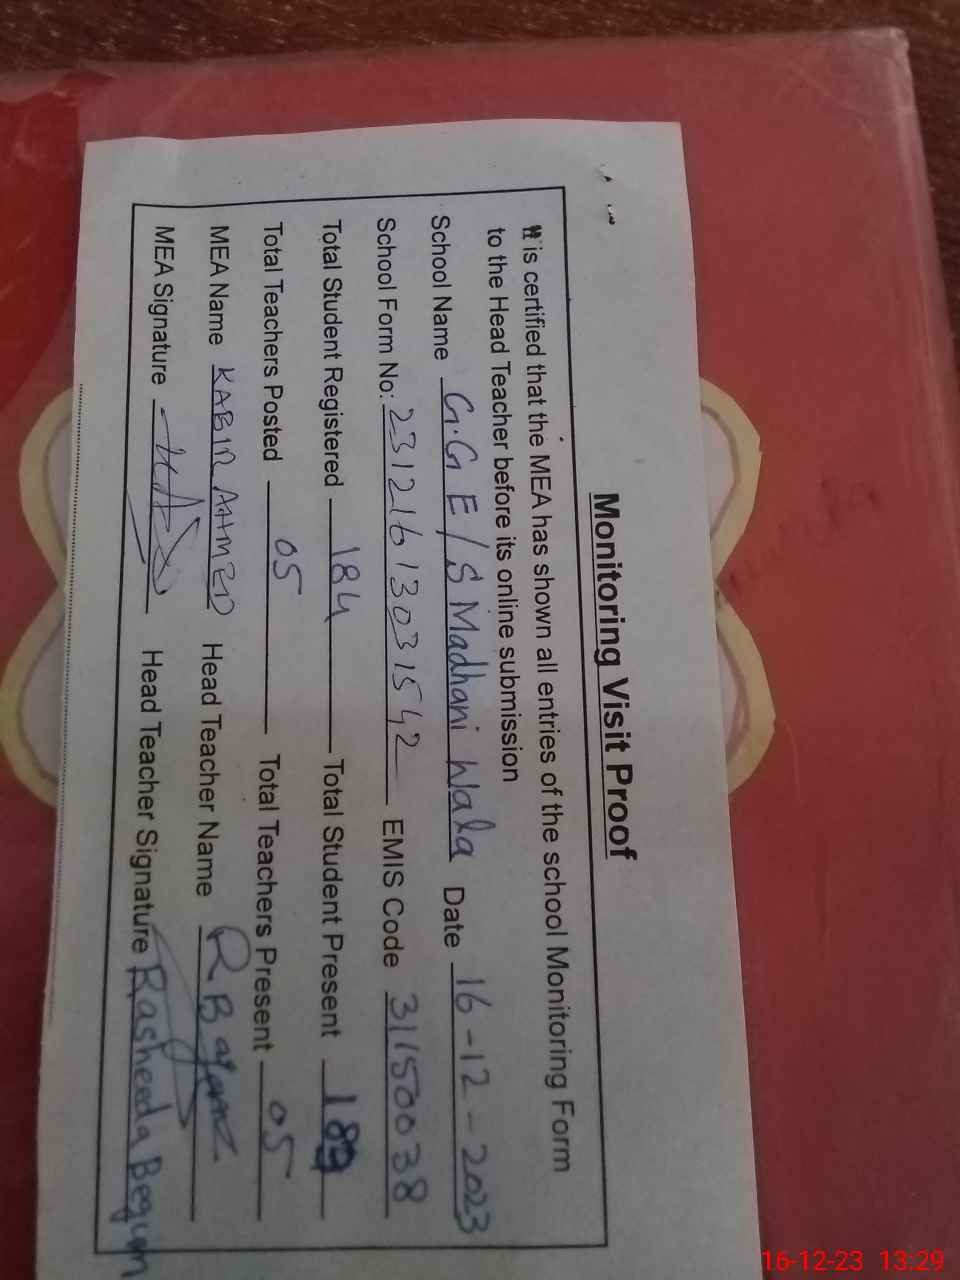 Monitoring Visit Proof
It is certified that the MEA has shown all entries of the school Monitoring Form
to the Head Teacher before its online submission
School Name G.G E/S Madhani Wala Date 16-12-2023
School Form No: 23121613031542 EMIS Code 31150038
Total Student Registered 184 Total Student Present
Total Teachers Posted 05 Total Teachers Present 05
MEA Name KABIR AHMED Head Teacher Name R Begum
MEA Signature Head Teacher Signature Rasheeda Begum
16-12-23 13:29